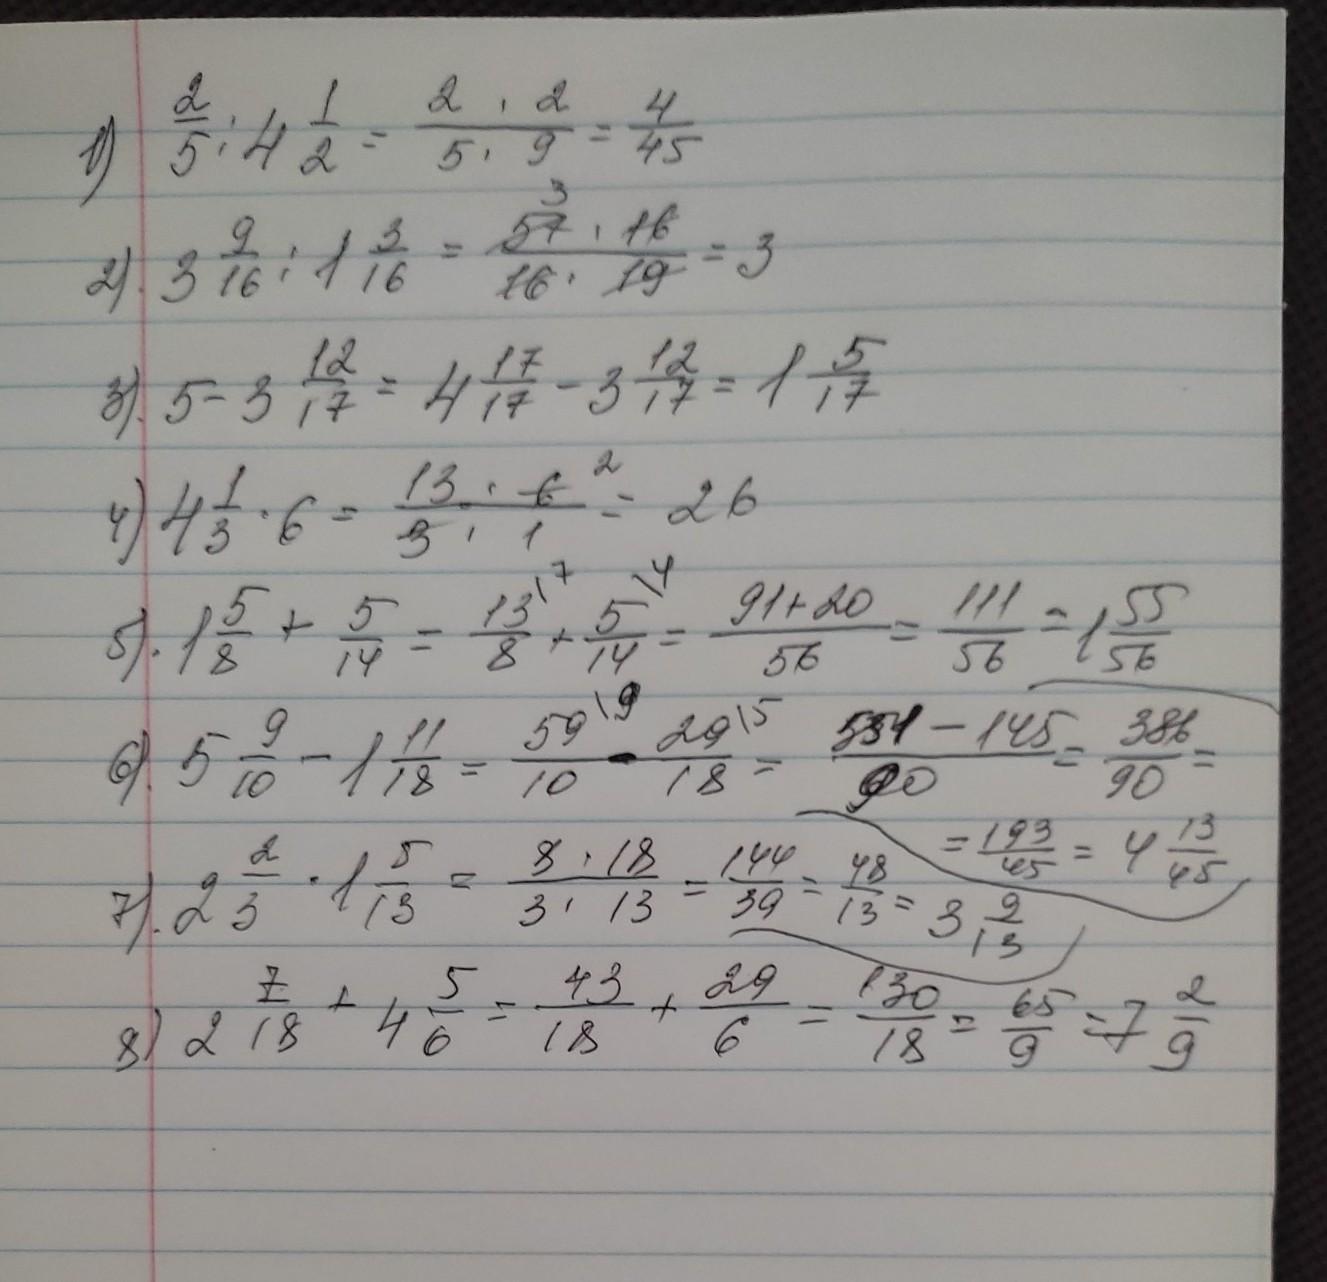 1) 2/5 : 4 1/2 = 2 · 2 / 5 · 9 = 4/45
2). 3 9/16 : 1 3/16 = 57 3 · 16 / 16 · 19 = 3
3). 5 - 3 12/17 = 4 17/17 - 3 12/17 = 1 5/17
4) 4 1/3 · 6 = 13 · 6 2 / 3 · 1 = 26
5). 1 5/8 + 5/14 = 13\7 / 8 + 5\4 / 14 = 91+20 / 56 = 111/56 = 1 55/56
6). 5 9/10 - 1 11/18 = 59\9 / 10 - 29\5 / 18 = 531 - 145 / 90 = 386/90 =
= 193/45 = 4 13/45
7). 2 2/3 · 1 5/13 = 8 · 18 / 3 · 13 = 144/39 = 48/13 = 3 9/13
8) 2 7/18 + 4 5/6 = 43/18 + 29/6 = 130/18 = 65/9 = 7 2/9